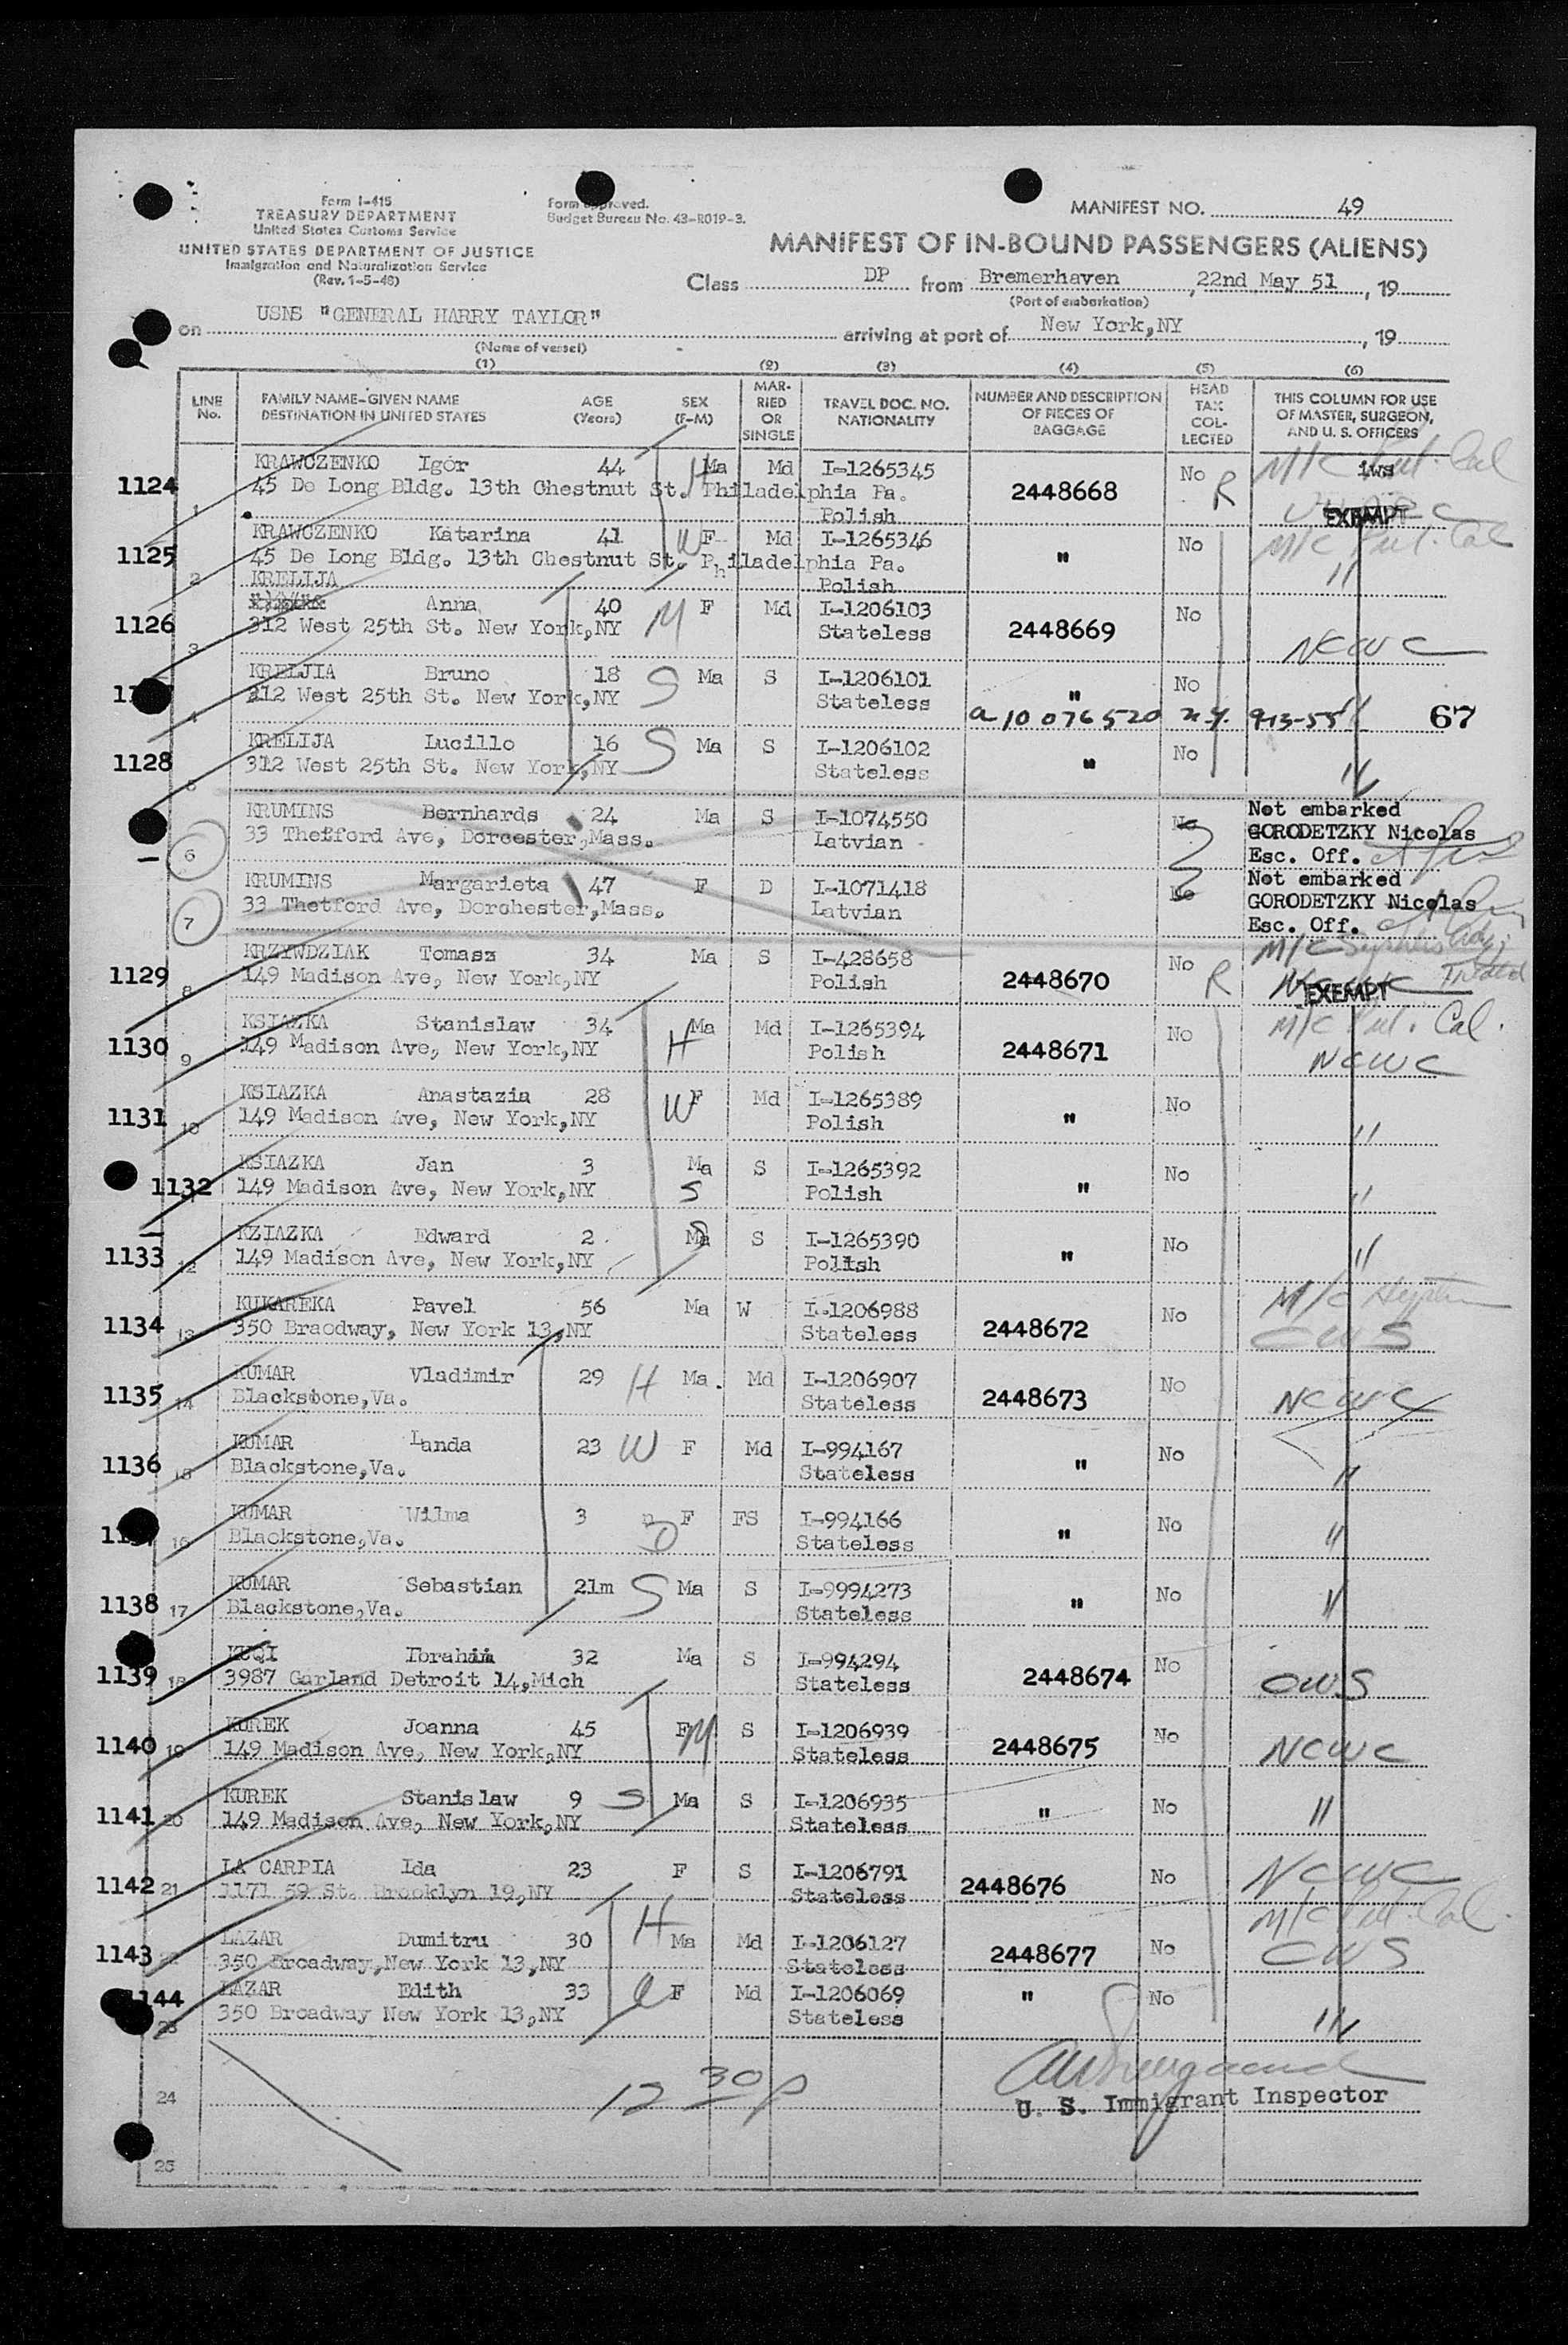 Form I-415
TREASURY DEPARTMENT
United States Customs Service
UNITED STATES DEPARTMENT OF JUSTICE
Immigration and Naturalization Service
(Rev. 1-5-48)
Form approved.
Budget Bureau No. 43-R019-3.
MANIFEST NO. 49
MANIFEST OF IN-BOUND PASSENGERS (ALIENS)
Class DP from Bremerhaven, 22nd May 51, 19
(Port of embarkation)
on USNS "GENERAL HARRY TAYLOR" arriving at port of New York,NY, 19
(Name of vessel)
(1) (2) (3) (4) (5) (6)
LINE No.
FAMILY NAME-GIVEN NAME
DESTINATION IN UNITED STATES
AGE (Years)
SEX (F-M)
MAR-RIED OR SINGLE
TRAVEL DOC. NO. NATIONALITY
NUMBER AND DESCRIPTION OF PIECES OF BAGGAGE
HEAD TAX COL-LECTED
THIS COLUMN FOR USE OF MASTER, SURGEON, AND U. S. OFFICERS
1124 1 KRAWCZENKO Igor 44 H Ma Md I-1265345 2448668 No R M/C Pul. Cal iws
45 De Long Bldg. 13th Chestnut St. Philadelphia Pa.
Polish EXEMPT
1125 2 KRAWCZENKO Katarina 41 W F Md I-1265346 " No M/C Pul. Cal
45 De Long Bldg. 13th Chestnut St. Philadelphia Pa. "
KRELIJA Polish
1126 3 Anna 40 M F Md I-1206103 2448669 No
312 West 25th St. New York,NY Stateless NCWC
4 KRELJIA Bruno 18 S Ma S I-1206101 " No
312 West 25th St. New York,NY Stateless
a 10 076 520 n.y. 9-13-55 " 67
1128 5 KRELIJA Lucillo 16 S Ma S I-1206102 " No
312 West 25th St. New York,NY Stateless "
6 KRUMINS Bernhards 24 Ma S I-1074550 No Not embarked
33 Thetford Ave, Dorcester,Mass. Latvian GORODETZKY Nicolas
Esc. Off.
7 KRUMINS Margarieta 47 F D I-1071418 No Not embarked
33 Thetford Ave, Dorchester,Mass. Latvian GORODETZKY Nicolas
Esc. Off.
1129 8 KRZYWDZIAK Tomasz 34 Ma S I-428658 2448670 No R M/C
149 Madison Ave, New York,NY Polish EXEMPT Treated
1130 9 KSIAZKA Stanislaw 34 H Ma Md I-1265394 2448671 No M/C Pul. Cal.
149 Madison Ave, New York,NY Polish NCWC
1131 10 KSIAZKA Anastazia 28 W F Md I-1265389 " No
149 Madison Ave, New York,NY Polish "
1132 KSIAZKA Jan 3 Ma S I-1265392 " No
149 Madison Ave, New York,NY S Polish "
1133 12 KZIAZKA Edward 2 S Ma S I-1265390 " No
149 Madison Ave, New York,NY Polish "
1134 13 KUKAREKA Pavel 56 Ma W I-1206988 2448672 No M/C
350 Braodway, New York 13,NY Stateless CWS
1135 14 KUMAR Vladimir 29 H Ma. Md I-1206907 2448673 No
Blackstone,Va. Stateless NCWC
1136 15 KUMAR Landa 23 W F Md I-994167 " No
Blackstone,Va. Stateless "
16 KUMAR Wilma 3 D F FS I-994166 " No
Blackstone,Va. Stateless "
1138 17 KUMAR Sebastian 21m S Ma S I-9994273 " No
Blackstone,Va. Stateless "
1139 18 KUQI Ibrahim 32 Ma S I-994294 2448674 No
3987 Garland Detroit 14,Mich Stateless CWS
1140 19 KUREK Joanna 45 F M S I-1206939 2448675 No
149 Madison Ave, New York,NY Stateless NCWC
1141 20 KUREK Stanislaw 9 S Ma S I-1206935 " No
149 Madison Ave, New York,NY Stateless "
1142 21 LA CARPIA Ida 23 F S I-1206791 2448676 No NCWC
1171 59 St. Brooklyn 19,NY Stateless
1143 22 LAZAR Dumitru 30 H Ma Md I-1206127 2448677 No M/C Pul. Cal.
350 Broadway,New York 13,NY Stateless CWS
1144 23 LAZAR Edith 33 W F Md I-1206069 " No
350 Broadway New York 13,NY Stateless "
24 12 30 p
U. S. Immigrant Inspector
25